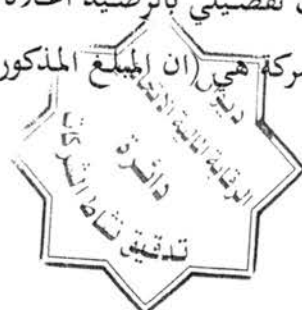 تفصيلي بالرصيد اعلاه
شركة هي (ان المبلغ المذكور
ديوان
الرقابة المالية الاتحادي
دائرة
تدقيق نشاط الشركات